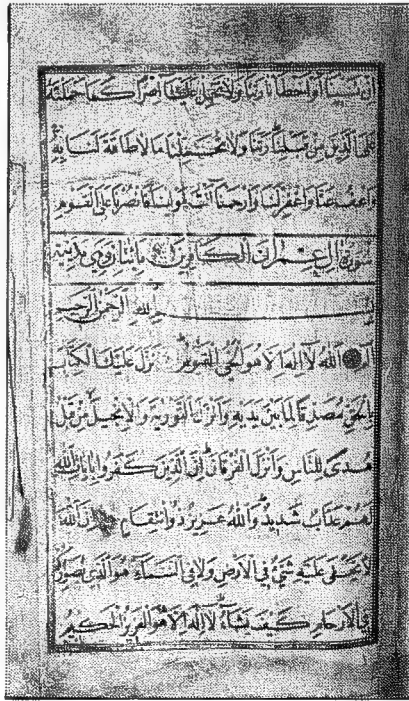 ان نسينا او اخطأنا ربنا ولا تحمل علينا اصرا كما حملته
على الذين من قبلنا ربنا ولا تحملنا ما لا طاقة لنا به
واعف عنا واغفر لنا وارحمنا انت مولينا فانصرنا على القوم
سورة ال عمران الكافرين مدنية
بسم الله الرحمن الرحيم
الم الله لا اله الا هو الحي القيوم نزل عليك الكتاب
بالحق مصدقا لما بين يديه وانزل التورية والانجيل من قبل
هدى للناس وانزل الفرقان ان الذين كفروا بايات الله
لهم عذاب شديد والله عزيز ذو انتقام ان الله
لا يخفى عليه شيء في الارض ولا في السماء هو الذي يصوركم
في الارحام كيف يشاء لا اله الا هو العزيز الحكيم